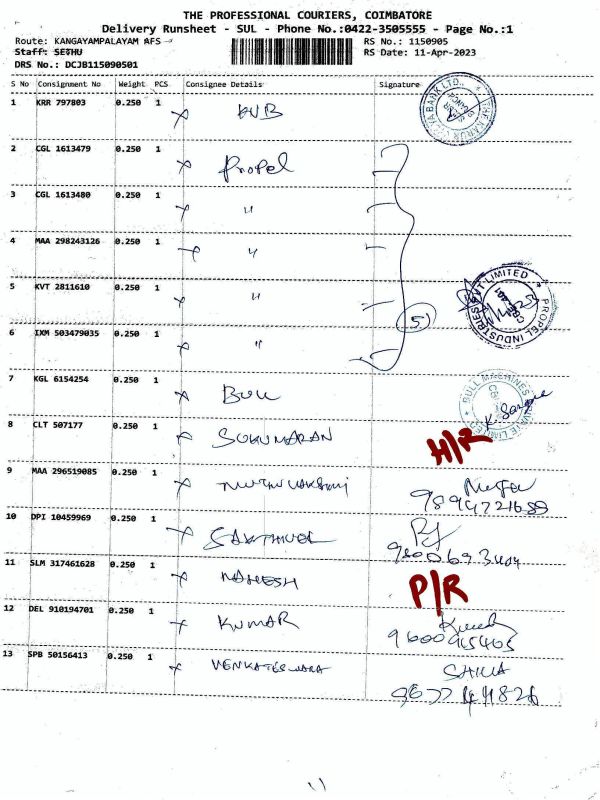 THE PROFESSIONAL COURIERS, COIMBATORE
Delivery Runsheet - SUL - Phone No.:0422-3505555 - Page No.:1
Route: KANGAYAMPALAYAM AFS RS No.: 1150905
Staff: SETHU RS Date: 11-Apr-2023
DRS No.: DCJB115090501
S No Consignment No Weight PCS Consignee Details Signature
1 KRR 797803 0.250 1 KVB
2 CGL 1613479 0.250 1 Propel
3 CGL 1613480 0.250 1 "
4 MAA 298243126 0.250 1 "
5 KVT 2811610 0.250 1 "
(5)
6 IXM 503479035 0.250 1 "
PROPEL INDUSTRIES PVT LIMITED
7 KGL 6154254 0.250 1 Bull
BULL MACHINES PRIVATE LIMITED
8 CLT 507177 0.250 1 SUKUMARAN H/R
9 MAA 296519085 0.250 1
10 DPI 10459969 0.250 1 SAKTHIVEL
11 SLM 317461628 0.250 1 MAHESH P/R
12 DEL 910194701 0.250 1 KUMAR
13 SPB 50156413 0.250 1 VENKATESWARA